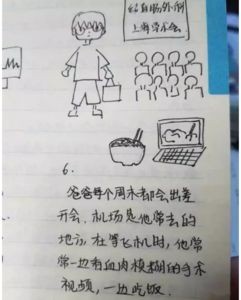 上海学术会
6.
爸爸每个周末都会出差
开会，机场是他常去的
地方，在等飞机时，他常
常一边看血肉模糊的手术
视频，一边吃饭。